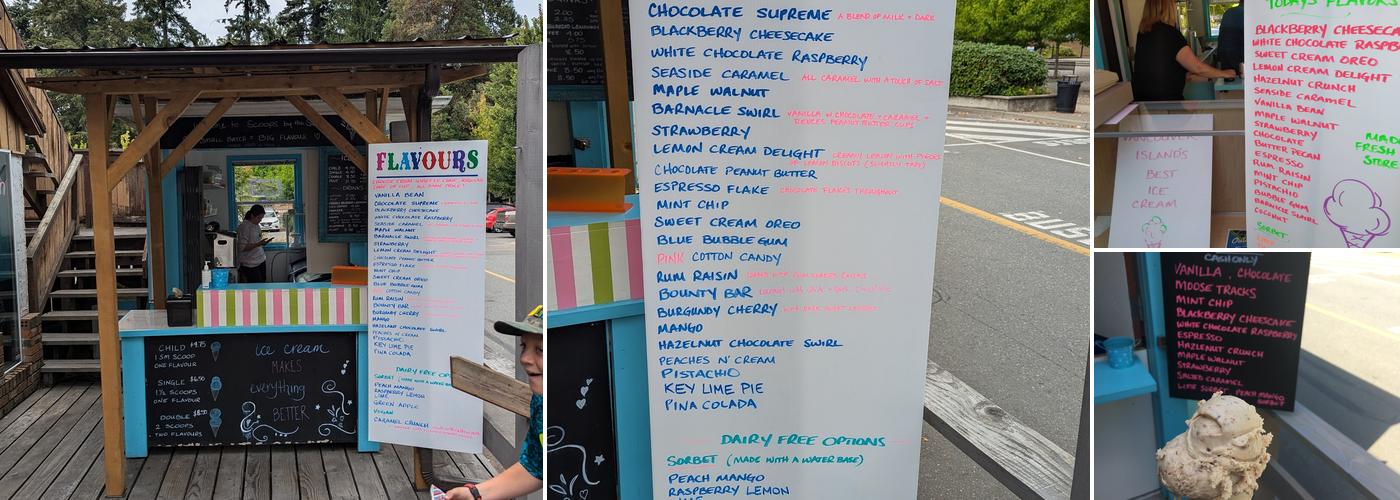 FLAVOURS
VANILLA BEAN
CHOCOLATE SUPREME
BLACKBERRY CHEESECAKE
WHITE CHOCOLATE RASPBERRY
SEASIDE CARAMEL
MAPLE WALNUT
BARNACLE SWIRL
STRAWBERRY
LEMON CREAM DELIGHT
CHOCOLATE PEANUT BUTTER
ESPRESSO FLAKE
MINT CHIP
SWEET CREAM OREO
BLUE BUBBLE GUM
PINK COTTON CANDY
RUM RAISIN
BOUNTY BAR
BURGUNDY CHERRY
MANGO
HAZELNUT CHOCOLATE SWIRL
PEACHES N' CREAM
PISTACHIO
KEY LIME PIE
PINA COLADA
DAIRY FREE OPT
SORBET (MADE WITH A WATER
PEACH MANGO
RASPBERRY LEMON
LIME
GREEN APPLE
VEGAN
CARAMEL CRUNCH
CHILD $4.75
1 SM SCOOP
ONE FLAVOUR
SINGLE $6.50
1½ SCOOPS
ONE FLAVOUR
DOUBLE $8.50
2 SCOOPS
TWO FLAVOURS
ice cream
MAKES
everything
BETTER
CHOCOLATE SUPREME A BLEND OF MILK + DARK
BLACKBERRY CHEESECAKE
WHITE CHOCOLATE RASPBERRY
SEASIDE CARAMEL ALL CARAMEL WITH A TOUCH OF SALT
MAPLE WALNUT
BARNACLE SWIRL VANILLA W CHOCOLATE + CARAMEL +
REECES PEANUT BUTTER CUPS
STRAWBERRY
LEMON CREAM DELIGHT CREAMY LEMON WITH PIECES
OF LEMON BISCUITS (SLIGHTLY TART)
CHOCOLATE PEANUT BUTTER
ESPRESSO FLAKE CHOCOLATE FLAKES THROUGHOUT
MINT CHIP
SWEET CREAM OREO
BLUE BUBBLE GUM
PINK COTTON CANDY
RUM RAISIN
BOUNTY BAR
BURGUNDY CHERRY
MANGO
HAZELNUT CHOCOLATE SWIRL
PEACHES N' CREAM
PISTACHIO
KEY LIME PIE
PINA COLADA
DAIRY FREE OPTIONS
SORBET (MADE WITH A WATER BASE)
PEACH MANGO
RASPBERRY LEMON
TODAYS FLAVORS
BLACKBERRY CHEESECA
WHITE CHOCOLATE RASPB
SWEET CREAM OREO
LEMON CREAM DELIGHT
HAZELNUT CRUNCH
SEASIDE CARAMEL
VANILLA BEAN
MAPLE WALNUT
STRAWBERRY
CHOCOLATE
BUTTER PECAN
ESPRESSO
RUM RAISIN
MINT CHIP
PISTACHIO
BUBBLE GUM
BARNACLE SWIRL
COCONUT
SORBET
MAD
FRESH
STORE
VANCOUVER
ISLAND'S
BEST
ICE
CREAM
CASH ONLY
VANILLA, CHOCOLATE
MOOSE TRACKS
MINT CHIP
BLACKBERRY CHEESECAKE
WHITE CHOCOLATE RASPBERRY
ESPRESSO
HAZELNUT CRUNCH
MAPLE WALNUT
STRAWBERRY
SALTED CARAMEL
LIME SORBET PEACH MANGO
SORBET